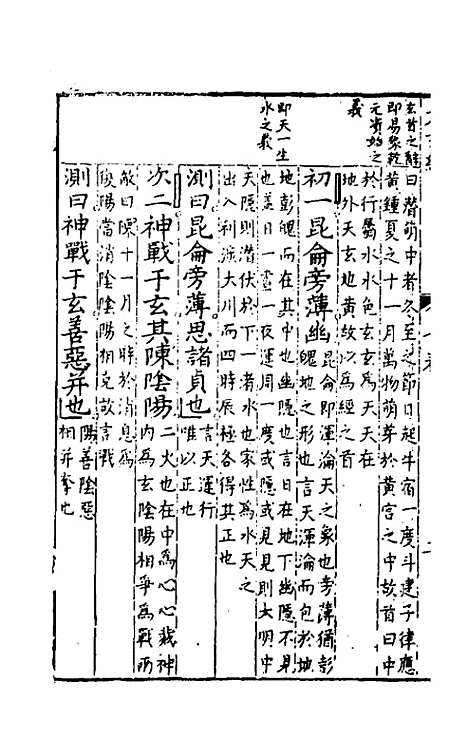 玄首之辭
即易彖乾
元資始之
義
曰潛萌中者冬至之節日起牛宿一度斗建子律應
黃鍾夏之十一月萬物萌芽於黃宮之中故首曰中
於行屬水水色玄玄為天天在
地外天玄地黃故以為經之首
初一昆侖旁薄幽
昆侖即渾淪天之象也旁薄猶彭
魄地之形也言天渾淪而包於地
即天一生
水之義
地彭魄而在其中也幽隱也言日在地下幽隱不見
也善日一晝一夜運周一度或隱或見見則大明中
天隱則潛伏於下一者水也家性為水天之
出入利涉大川而四時辰極各得其正也
測曰昆侖旁薄思諸貞也
言天運行
唯以正也
次二神戰于玄其陳陰陽
二火也在中為心心藏神
內為玄陰陽相爭為戰丙
敵曰陳十一月之時於消息為
陽當消陰陰陽相克故言戰
測曰神戰于玄善惡并也
陽善陰惡
相并爭也